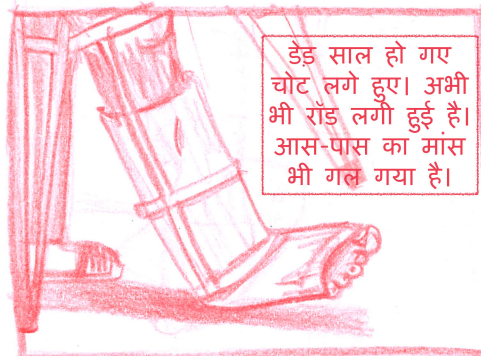 डेड़ साल हो गए
चोट लगे हुए। अभी
भी रॉड लगी हुई है।
आस-पास का मांस
भी गल गया है।